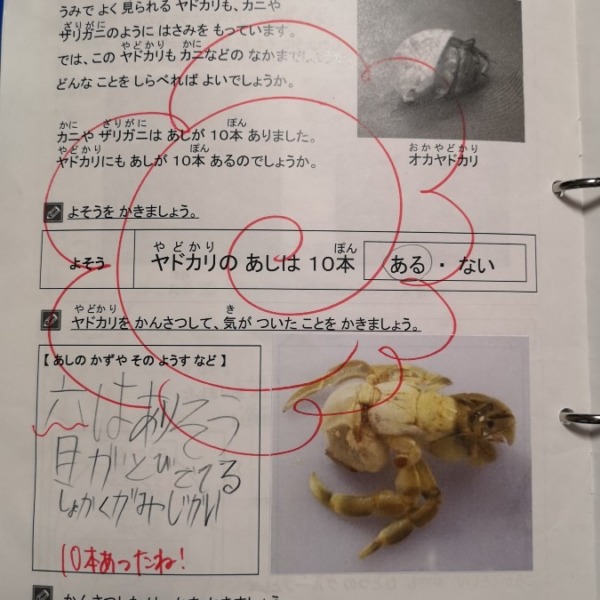 うみで よく 見られる ヤドカリも、カニや
ざりがに
ザリガニのように はさみを もっています。
やどかり かに
では、この ヤドカリも カニなどの なかま
どんな ことを しらべれば よいでしょうか。
かに ざりがに ぽん
カニや ザリガニは あしが 10本 ありました。
やどかり ぽん
ヤドカリにも あしが 10本 あるのでしょうか。
おかやどかり
オカヤドカリ
よそうを かきましょう。
やどかり ぽん
よそう ヤドカリの あしは 10本 ある ・ ない
やどかり き
ヤドカリを かんさつして、気が ついた ことを かきましょう。
【 あしの かずや その ようす など 】
六はありそう
目がとびでてる
しょかくがみじかい
10本あったね!